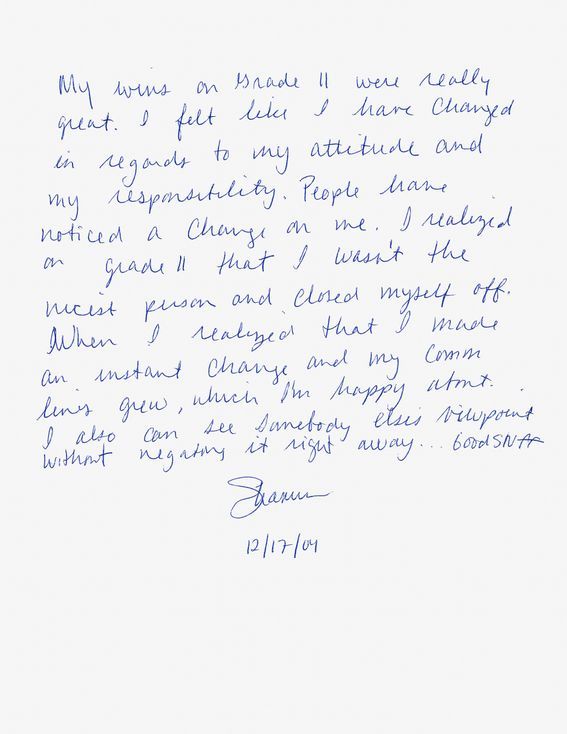 My wins on Grade II were really
great. I felt like I have changed
in regards to my attitude and
my responsibility. People have
noticed a change on me. I realized
on grade II that I wasn't the
nicest person and closed myself off.
When I realized that I made
an instant change and my comm
lines grew, which I'm happy about.
I also can see somebody elses viewpoint
without negating it right away... Good
12/17/04